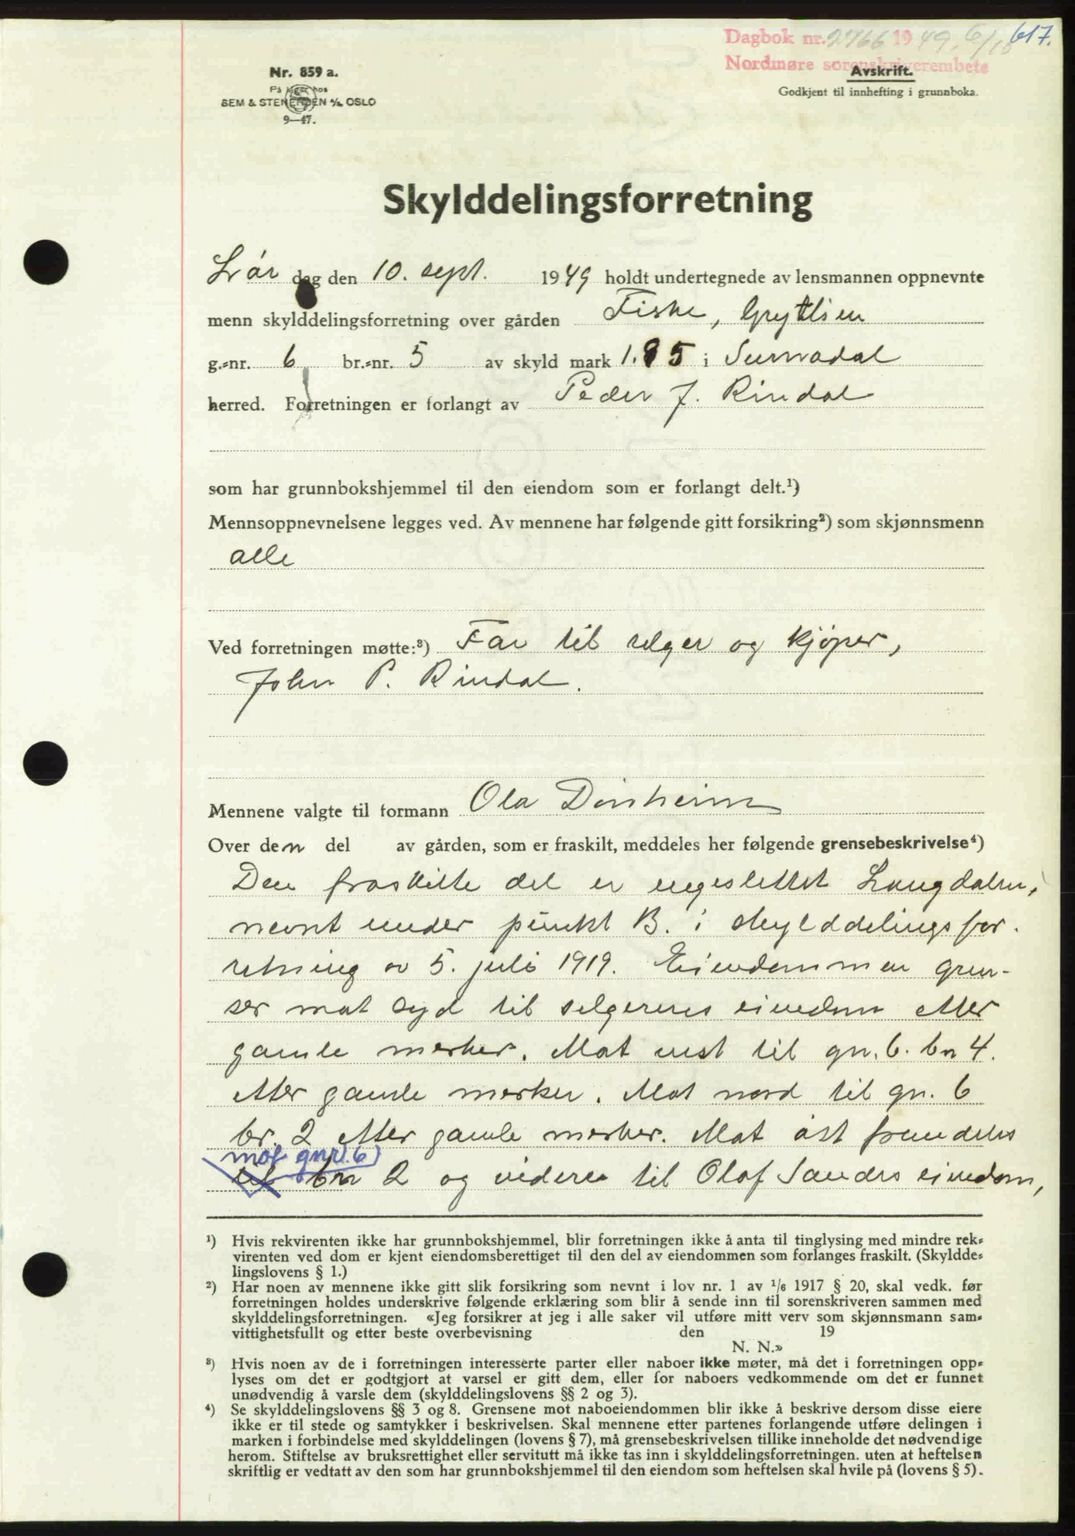 Dagbok nr. 2766 1949. 6/10 617.
Nordmøre sorenskriverembete
Avskrift.
Godkjent til innhefting i grunnboka.
Nr. 859 a.
På lager hos
SEM & STENERSEN A/S OSLO
9—47.
Skylddelingsforretning
Lør dag den 10. sept. 1949 holdt undertegnede av lensmannen oppnevnte
menn skylddelingsforretning over gården Fiske, Grytlien
g.=nr. 6 br.=nr. 5 av skyld mark 1.85 i Surnadal
herred. Forretningen er forlangt av Peder J. Rindal
som har grunnbokshjemmel til den eiendom som er forlangt delt.¹)
Mennsoppnevnelsene legges ved. Av mennene har følgende gitt forsikring²) som skjønnsmenn
alle
Ved forretningen møtte:³) Far til selger og kjøper,
John P. Rindal.
Mennene valgte til formann Ola Dønheim
Over den del av gården, som er fraskilt, meddeles her følgende grensebeskrivelse⁴)
Den fraskilte del er engeslettet Langdalen,
nevnt under punkt B. i skylddelingsfor-
retning av 5. juli 1919. Eiendommen gren-
ser mot syd til selgerens eiendom etter
gamle merker. Mot vest til gn. 6. bn 4.
etter gamle merker. Mot nord til gn. 6
br. 2 etter gamle merker. Mot øst fremdeles
mot gnr. 6)
til bn 2 og videre til Olaf Sandes eiendom,
¹) Hvis rekvirenten ikke har grunnbokshjemmel, blir forretningen ikke å anta til tinglysing med mindre rek=
virenten ved dom er kjent eiendomsberettiget til den del av eiendommen som forlanges fraskilt. (Skyldde=
lingslovens § 1.)
²) Har noen av mennene ikke gitt slik forsikring som nevnt i lov nr. 1 av 1/6 1917 § 20, skal vedk. før
forretningen holdes underskrive følgende erklæring som blir å sende inn til sorenskriveren sammen med
skylddelingsforretningen. «Jeg forsikrer at jeg i alle saker vil utføre mitt verv som skjønnsmann sam=
vittighetsfullt og etter beste overbevisning den 19
N. N.»
³) Hvis noen av de i forretningen interesserte parter eller naboer ikke møter, må det i forretningen opp=
lyses om det er godtgjort at varsel er gitt dem, eller for naboers vedkommende om det er funnet
unødvendig å varsle dem (skylddelingslovens §§ 2 og 3).
⁴) Se skylddelingslovens §§ 3 og 8. Grensene mot naboeiendommen blir ikke å beskrive dersom disse eiere
ikke er til stede og samtykker i beskrivelsen. Skal mennene etter partenes forlangende utføre delingen i
marken i forbindelse med skylddelingen (lovens § 7), må grensebeskrivelsen tillike inneholde det nødvendige
herom. Stiftelse av bruksrettighet eller servitutt må ikke tas inn i skylddelingsforretningen, uten at heftelsen
skriftlig er vedtatt av den som har grunnbokshjemmel til den eiendom som heftelsen skal hvile på (lovens § 5).